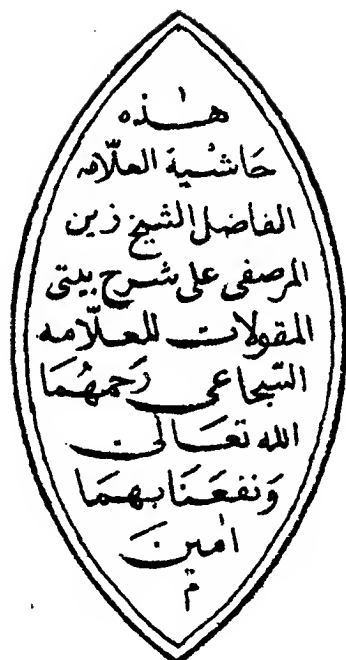 هٰذه
حَاشْية العلّامه
الفاضل الشيخ زين
المرصفى على شرح بيتى
المقولات للعلّامه
السّجاعى رَحمهُمَا
الله تعَالى
وَنفعَنَا بهمَا
اٰمين
م